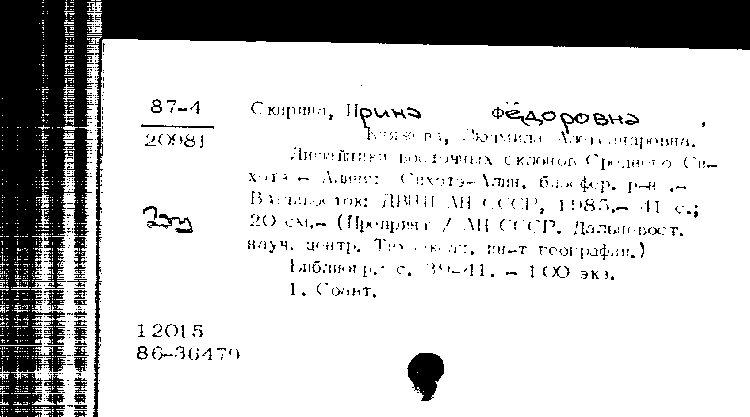 87-4
20981
Скирина, Ирина Фёдоровна,
Князева, Людмила Александровна.
Лишайники восточных склонов Среднего Си-
хотэ-Алиня: Сихотэ-Алин. биосфер. р-н .-
Владивосток: ДВНЦ АН СССР, 1985.- 41 с.;
20 см.- (Препринт / АН СССР. Дальневост.
науч. центр. Тихоокеан. ин-т географии.)
Библиогр.: с. 39-41. - 100 экз.
1. Соавт.
12015
86-36479